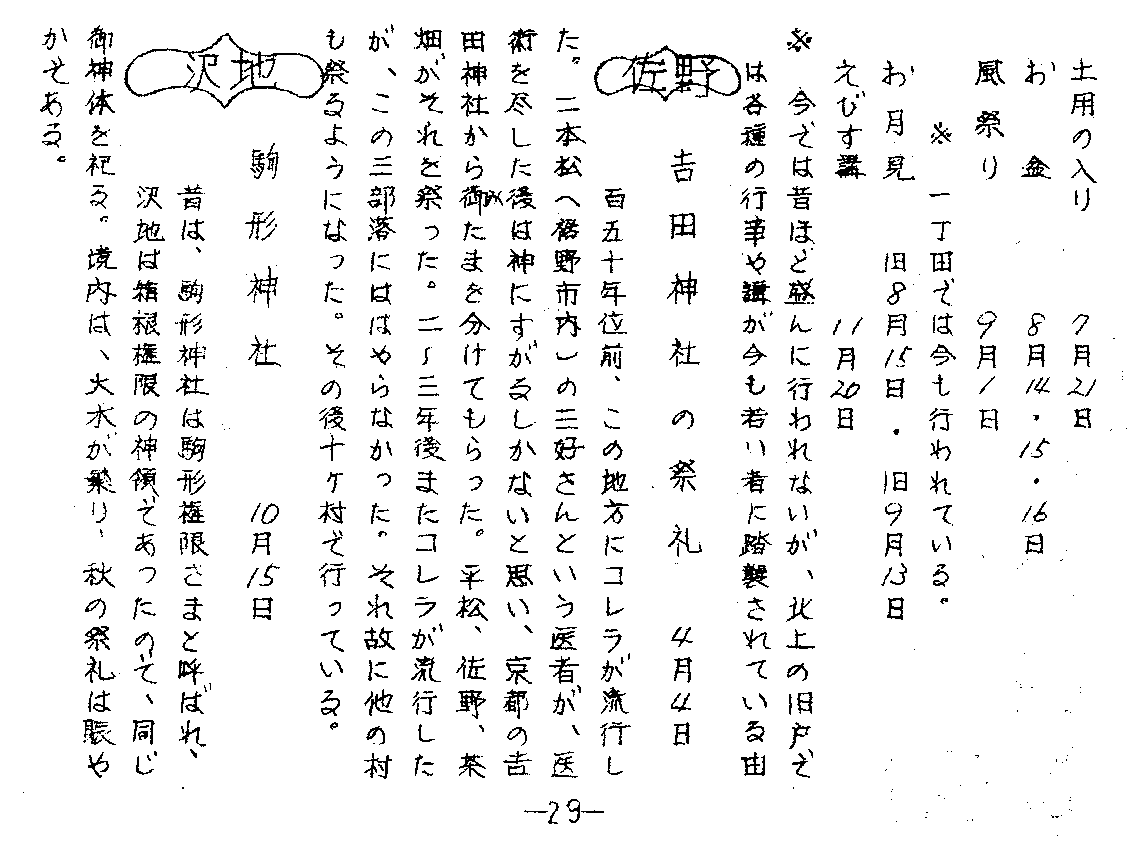 土用の入り　7月21日
お盆　8月14・15・16日
風祭り　9月1日
※一丁田では今も行われている。
お月見　旧8月15日・旧9月13日
えびす講　11月20日
※　今では昔ほど盛んに行われないが、北上の旧戸で
は各種の行事や講が今も若い者に踏襲されている由
佐野
吉田神社の祭礼　4月4日
百五十年位前、この地方にコレラが流行し
た。二本松へ裾野市内)の三好さんという医者が、医
術を尽した後は神にすがるしかないと思い、京都の吉
田神社から御みたまを分けてもらった。平松、佐野、茶
畑がそれを祭った。二～三年後またコレラが流行した
が、この三部落にははやらなかった。それ故に他の村
も祭るようになった。その後十ヶ村で行っている。
沢地
駒形神社　10月15日
昔は、駒形神社は駒形権限さまと呼ばれ、
沢地は箱根権限の神領であったので、同じ
御神体を祀る。境内は、大木が繁り、秋の祭礼は賑や
かである。
—29—